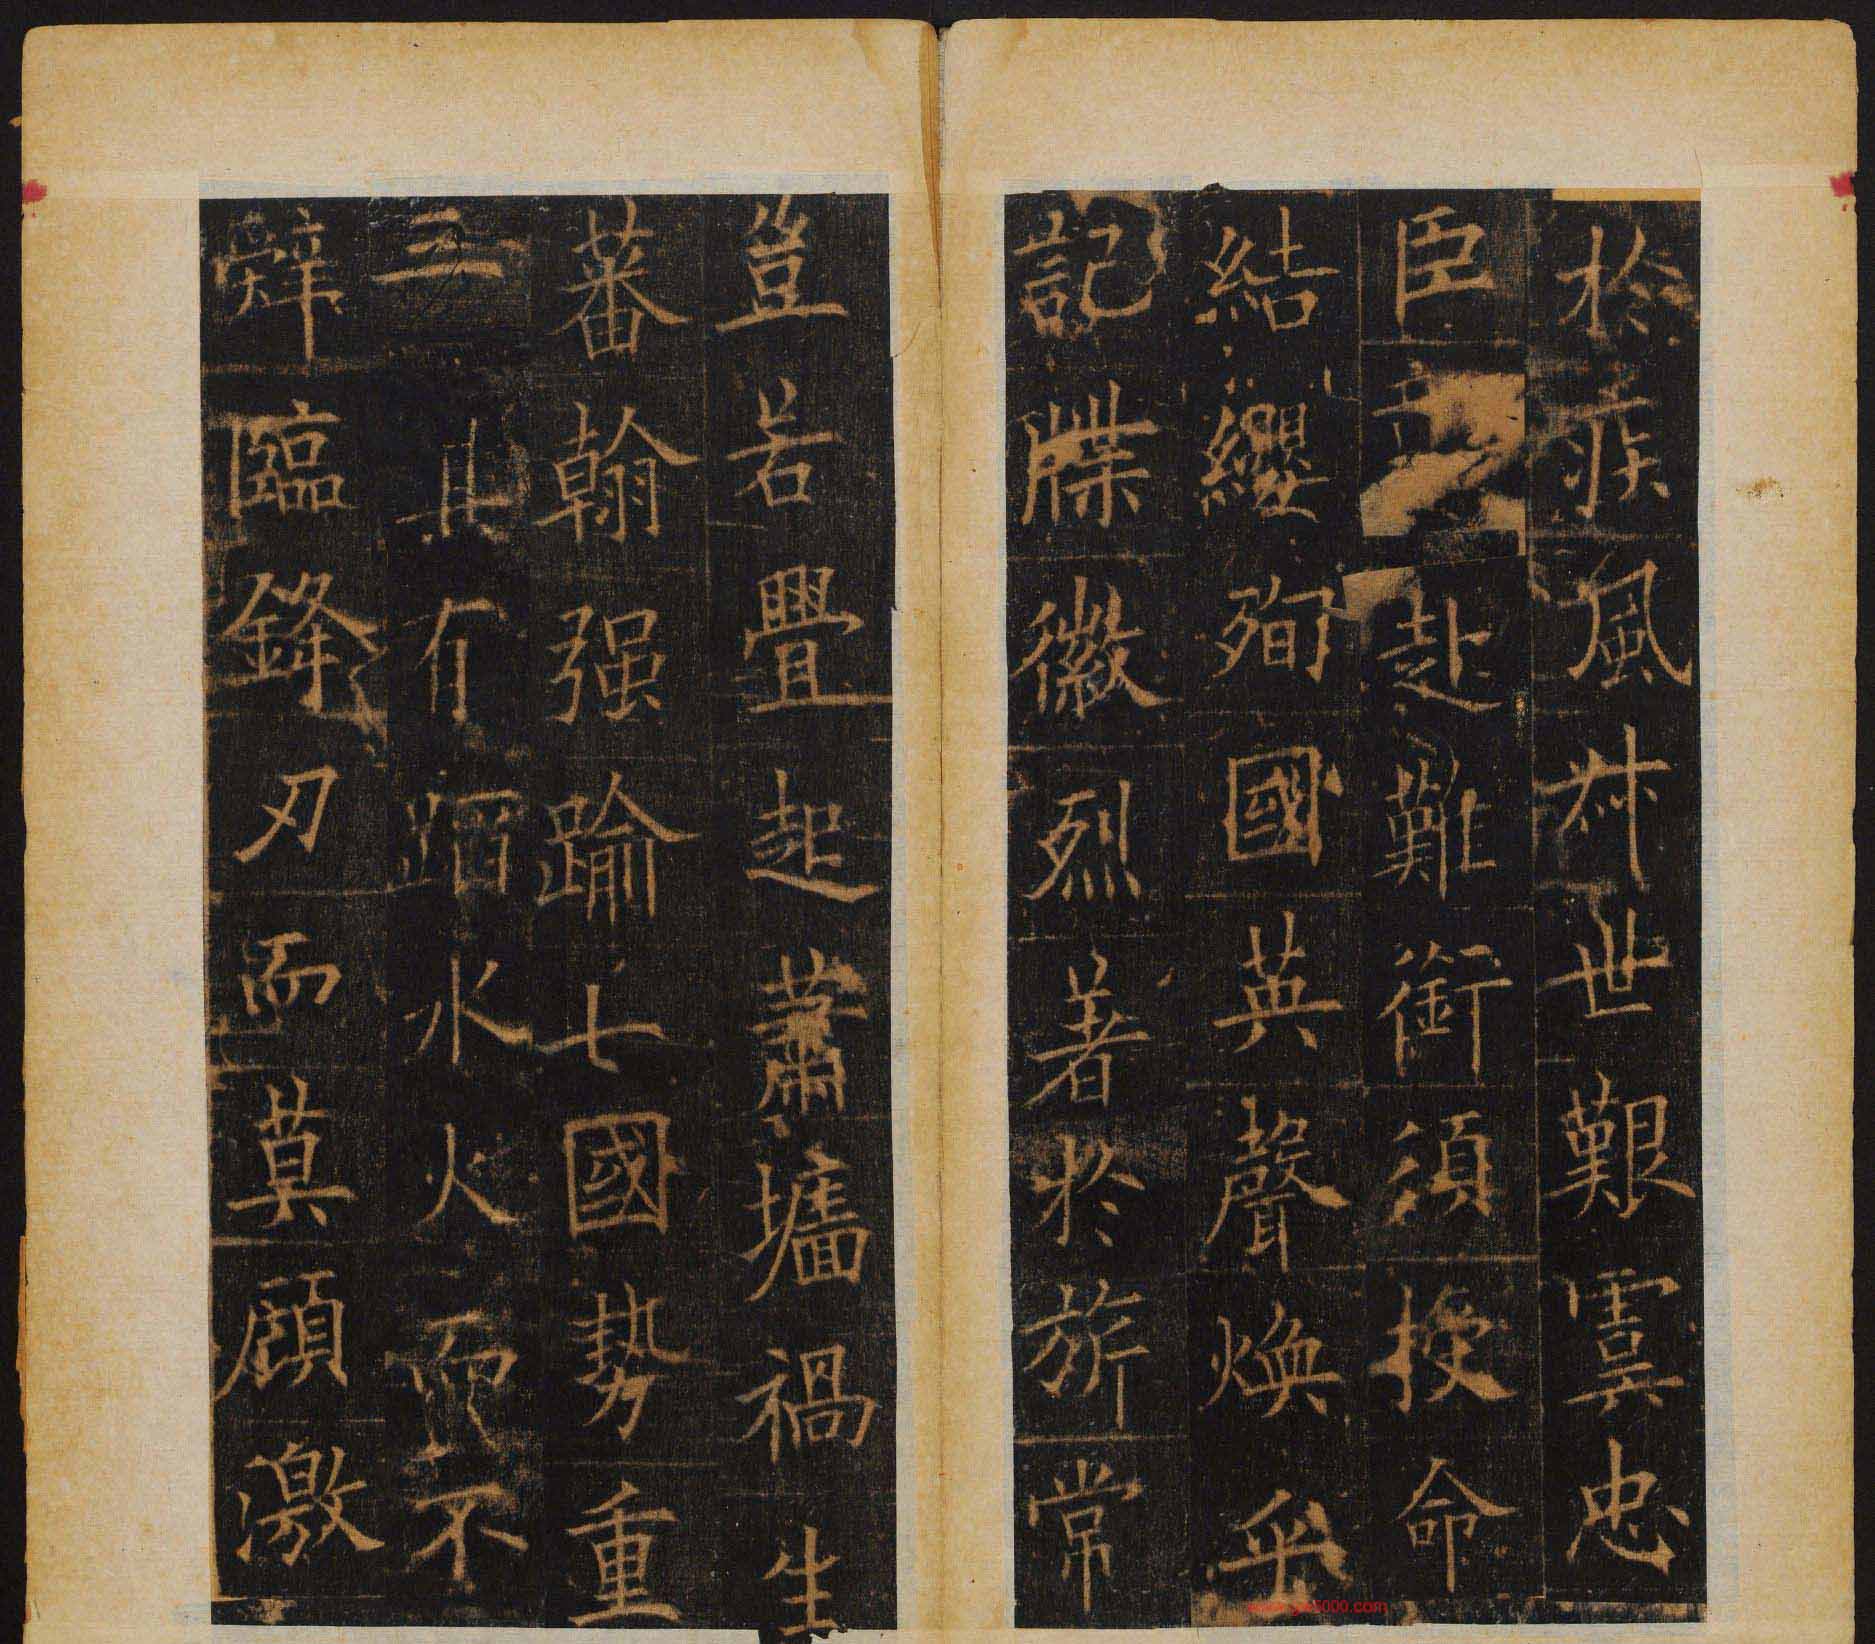 於疾風叔世艱虞忠
臣赴難銜須授命
結纓殉國英聲煥乎
記牒徽烈著於旂常
豈若釁起蕭墻禍生
蕃翰强踰七國勢重
三其有蹈水火而不
辤臨鋒刃而莫顧激